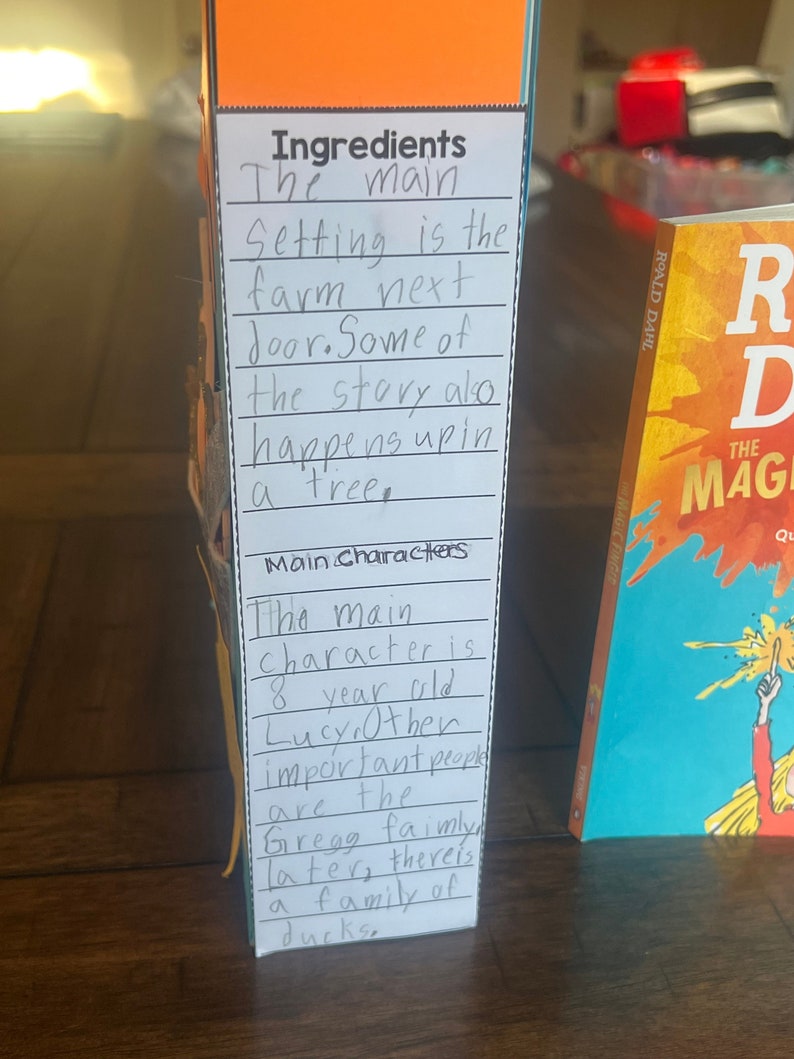 Ingredients
The main
setting is the
farm next
door. Some of
the story also
happens up in
a tree.
Main Characters
The main
character is
8 year old
Lucy. Other
important people
are the
Gregg faimly.
later, there is
a family of
ducks.
ROALD DAHL
THE MAGIC FINGER
VIKING
R
D
THE
MAGI
Qu